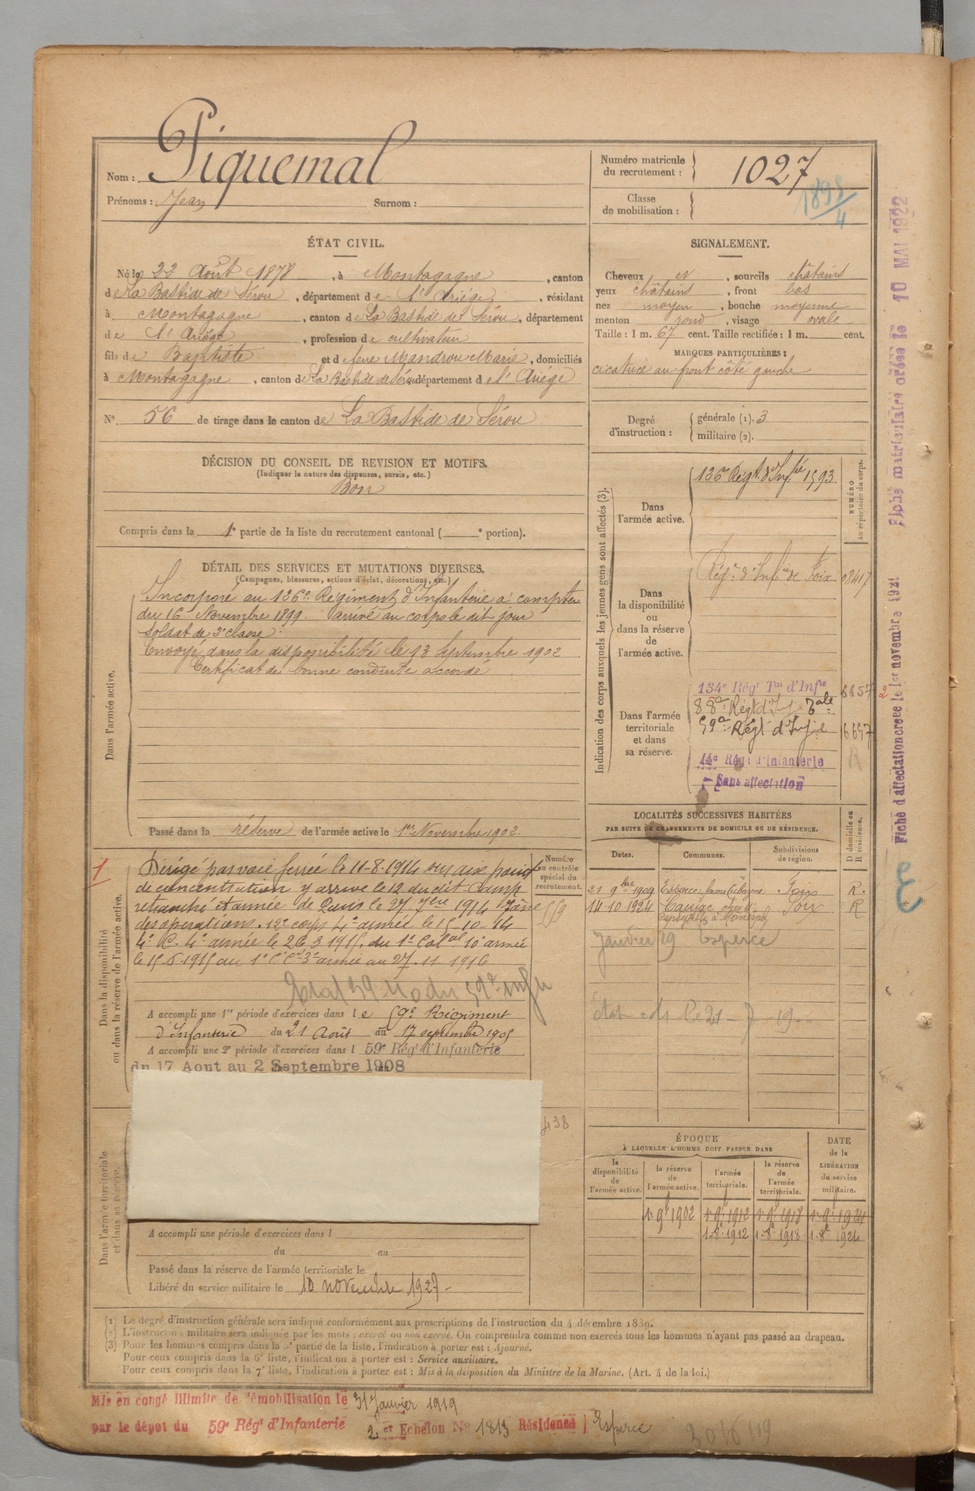 Nom : Piquemal
Prénoms : Jean Surnom :
Numéro matricule du recrutement : 1027
Classe de mobilisation : 1898/4
ÉTAT CIVIL.
Né le 22 Août 1878, à Montagagne, canton
de La Bastide de Sérou, département de l'Ariège, résidant
à Montagagne, canton de La Bastide de Sérou, département
de l'Ariège, profession de cultivateur
fils de Baptiste et de feue Mandrou Marie, domiciliés
à Montagagne, canton de La Bastide de Sérou, département de l'Ariège
N° 56 de tirage dans le canton de La Bastide de Sérou
SIGNALEMENT.
Cheveux et, sourcils châtains
yeux châtains, front bas
nez moyen, bouche moyenne
menton rond, visage ovale
Taille : 1 m. 67 cent. Taille rectifiée : 1 m. cent.
MARQUES PARTICULIÈRES :
cicatrice au front côté gauche
Degré d'instruction : générale (1). 3
militaire (2).
DÉCISION DU CONSEIL DE REVISION ET MOTIFS.
(Indiquer la nature des dispenses, sursis, etc.)
Bon
Compris dans la 1e partie de la liste du recrutement cantonal ( e portion).
DÉTAIL DES SERVICES ET MUTATIONS DIVERSES.
(Campagnes, blessures, actions d'éclat, décorations, etc.)
Dans l'armée active.
Incorporé au 136e Régiment d'Infanterie à compter
du 16 Novembre 1899 arrivé au corps le dit jour
Soldat de 2e classe.
Envoyé dans la disponibilité le 13 Septembre 1902
Certificat de bonne conduite accordé
Passé dans la réserve de l'armée active le 1er Novembre 1902.
Indication des corps auxquels les jeunes gens sont affectés (3).
NUMÉRO au répertoire du corps.
Dans l'armée active.
136e Régt d'Infie 1593
Dans la disponibilité ou dans la réserve de l'armée active.
Régt d'Infie de Foix
Dans l'armée territoriale et dans sa réserve.
134e Régt Tal d'Infie 6657
59e Régt d'Infie 6657
14e Régt d'Infanterie
Sans affectation
LOCALITÉS SUCCESSIVES HABITÉES
PAR SUITE DE CHANGEMENTS DE DOMICILE OU DE RÉSIDENCE.
Dates. Communes. Subdivisions de région. D domicile ou R résidence.
21 9bre 1909 Foix R.
14-10.1924 Foix R
Janvier 19 Esperce
Dans la disponibilité ou dans la réserve de l'armée active.
1
Numéro au contrôle spécial du recrutement.
Dirigé par voie ferrée le 11-8-1914
de concentration y arrive le 12 du dit Camp
retranché et armée de Paris le 27 7bre 1914 Zone
des opérations. 12e corps 4e armée le 15-10-14
le 15-6-1915 au 1er 3e armée au 27.11.1916
A accompli une 1re période d'exercices dans le 59e Régiment
d'Infanterie du 21 Août au 17 septembre 1905
A accompli une 2e période d'exercices dans l 59e Régt d'Infanterie
du 17 Aout au 2 Septembre 1908
438
Dans l'armée territoriale et dans sa réserve.
A accompli une période d'exercices dans l
du au
Passé dans la réserve de l'armée territoriale le
Libéré du service militaire le 10 novembre 1927.
ÉPOQUE
À LAQUELLE L'HOMME DOIT PASSER DANS
la disponibilité de l'armée active. la réserve de l'armée active. l'armée territoriale. la réserve de l'armée territoriale.
DATE de la LIBÉRATION du service militaire.
1.9b 1902 1.9b.1912 1.9b.1918 1.9b.1924
1.8b.1912 1.8b.1918 1.8b 1924
(1) Le degré d'instruction générale sera indiqué conformément aux prescriptions de l'instruction du 4 décembre 1889.
(2) L'instruction militaire sera indiquée par les mots : exercé ou non exercé. On comprendra comme non exercés tous les hommes n'ayant pas passé au drapeau.
(3) Pour les hommes compris dans la 5e partie de la liste, l'indication à porter est : Ajourné.
Pour ceux compris dans la 6e liste, l'indication à porter est : Service auxiliaire.
Pour ceux compris dans la 7e liste, l'indication à porter est : Mis à la disposition du Ministre de la Marine. (Art. 4 de la loi.)
Mis en congé illimité de démobilisation le 31 Janvier 1919
par le dépot du 59e Régt d'Infanterie 2er Echelon No 1813 Résidence Esperce
Fiche d'affectation créée le 1er novembre 1921
Fiche matriculaire créée le 10 MAI 1922